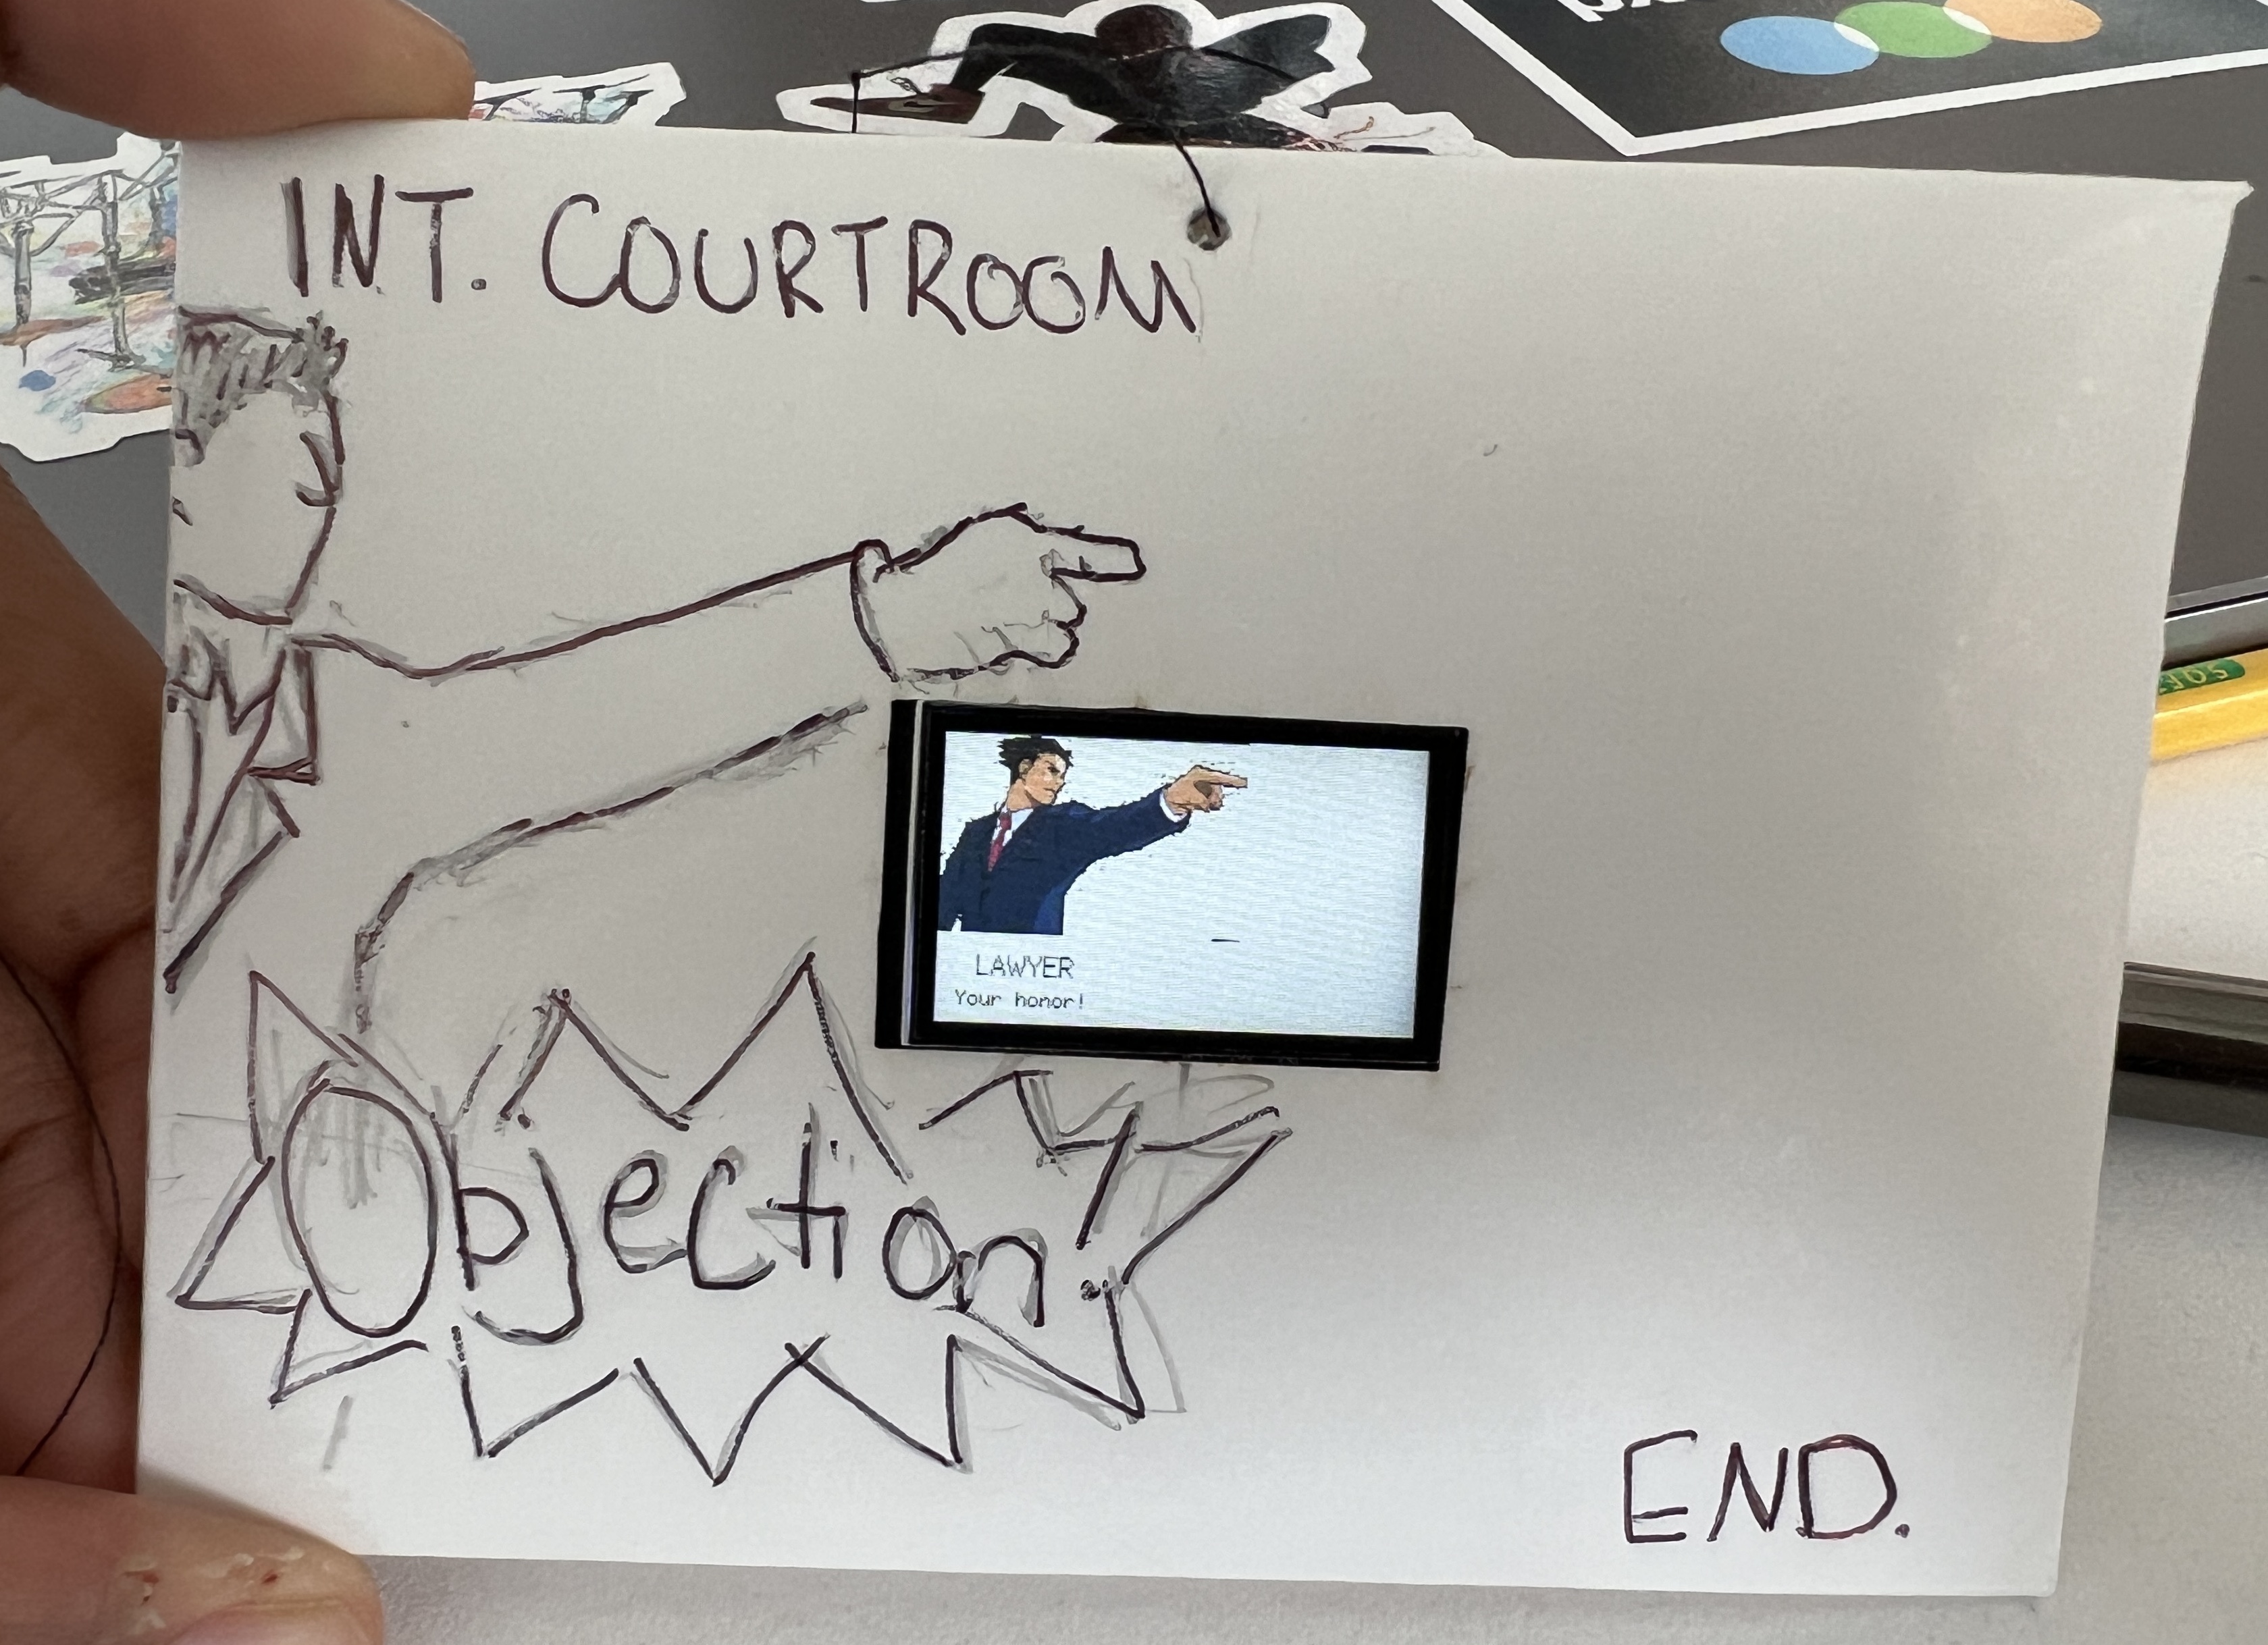 INT. COURTROOM
LAWYER
Your honor!
Objection!
END.